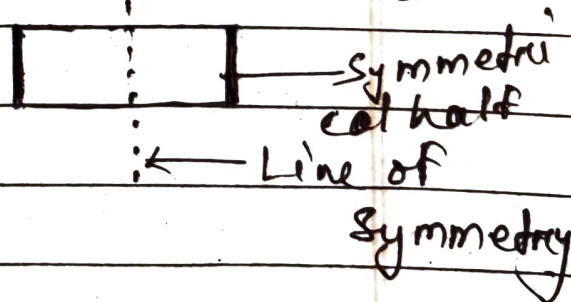 Symmetri
cal half
Line of
Symmetry